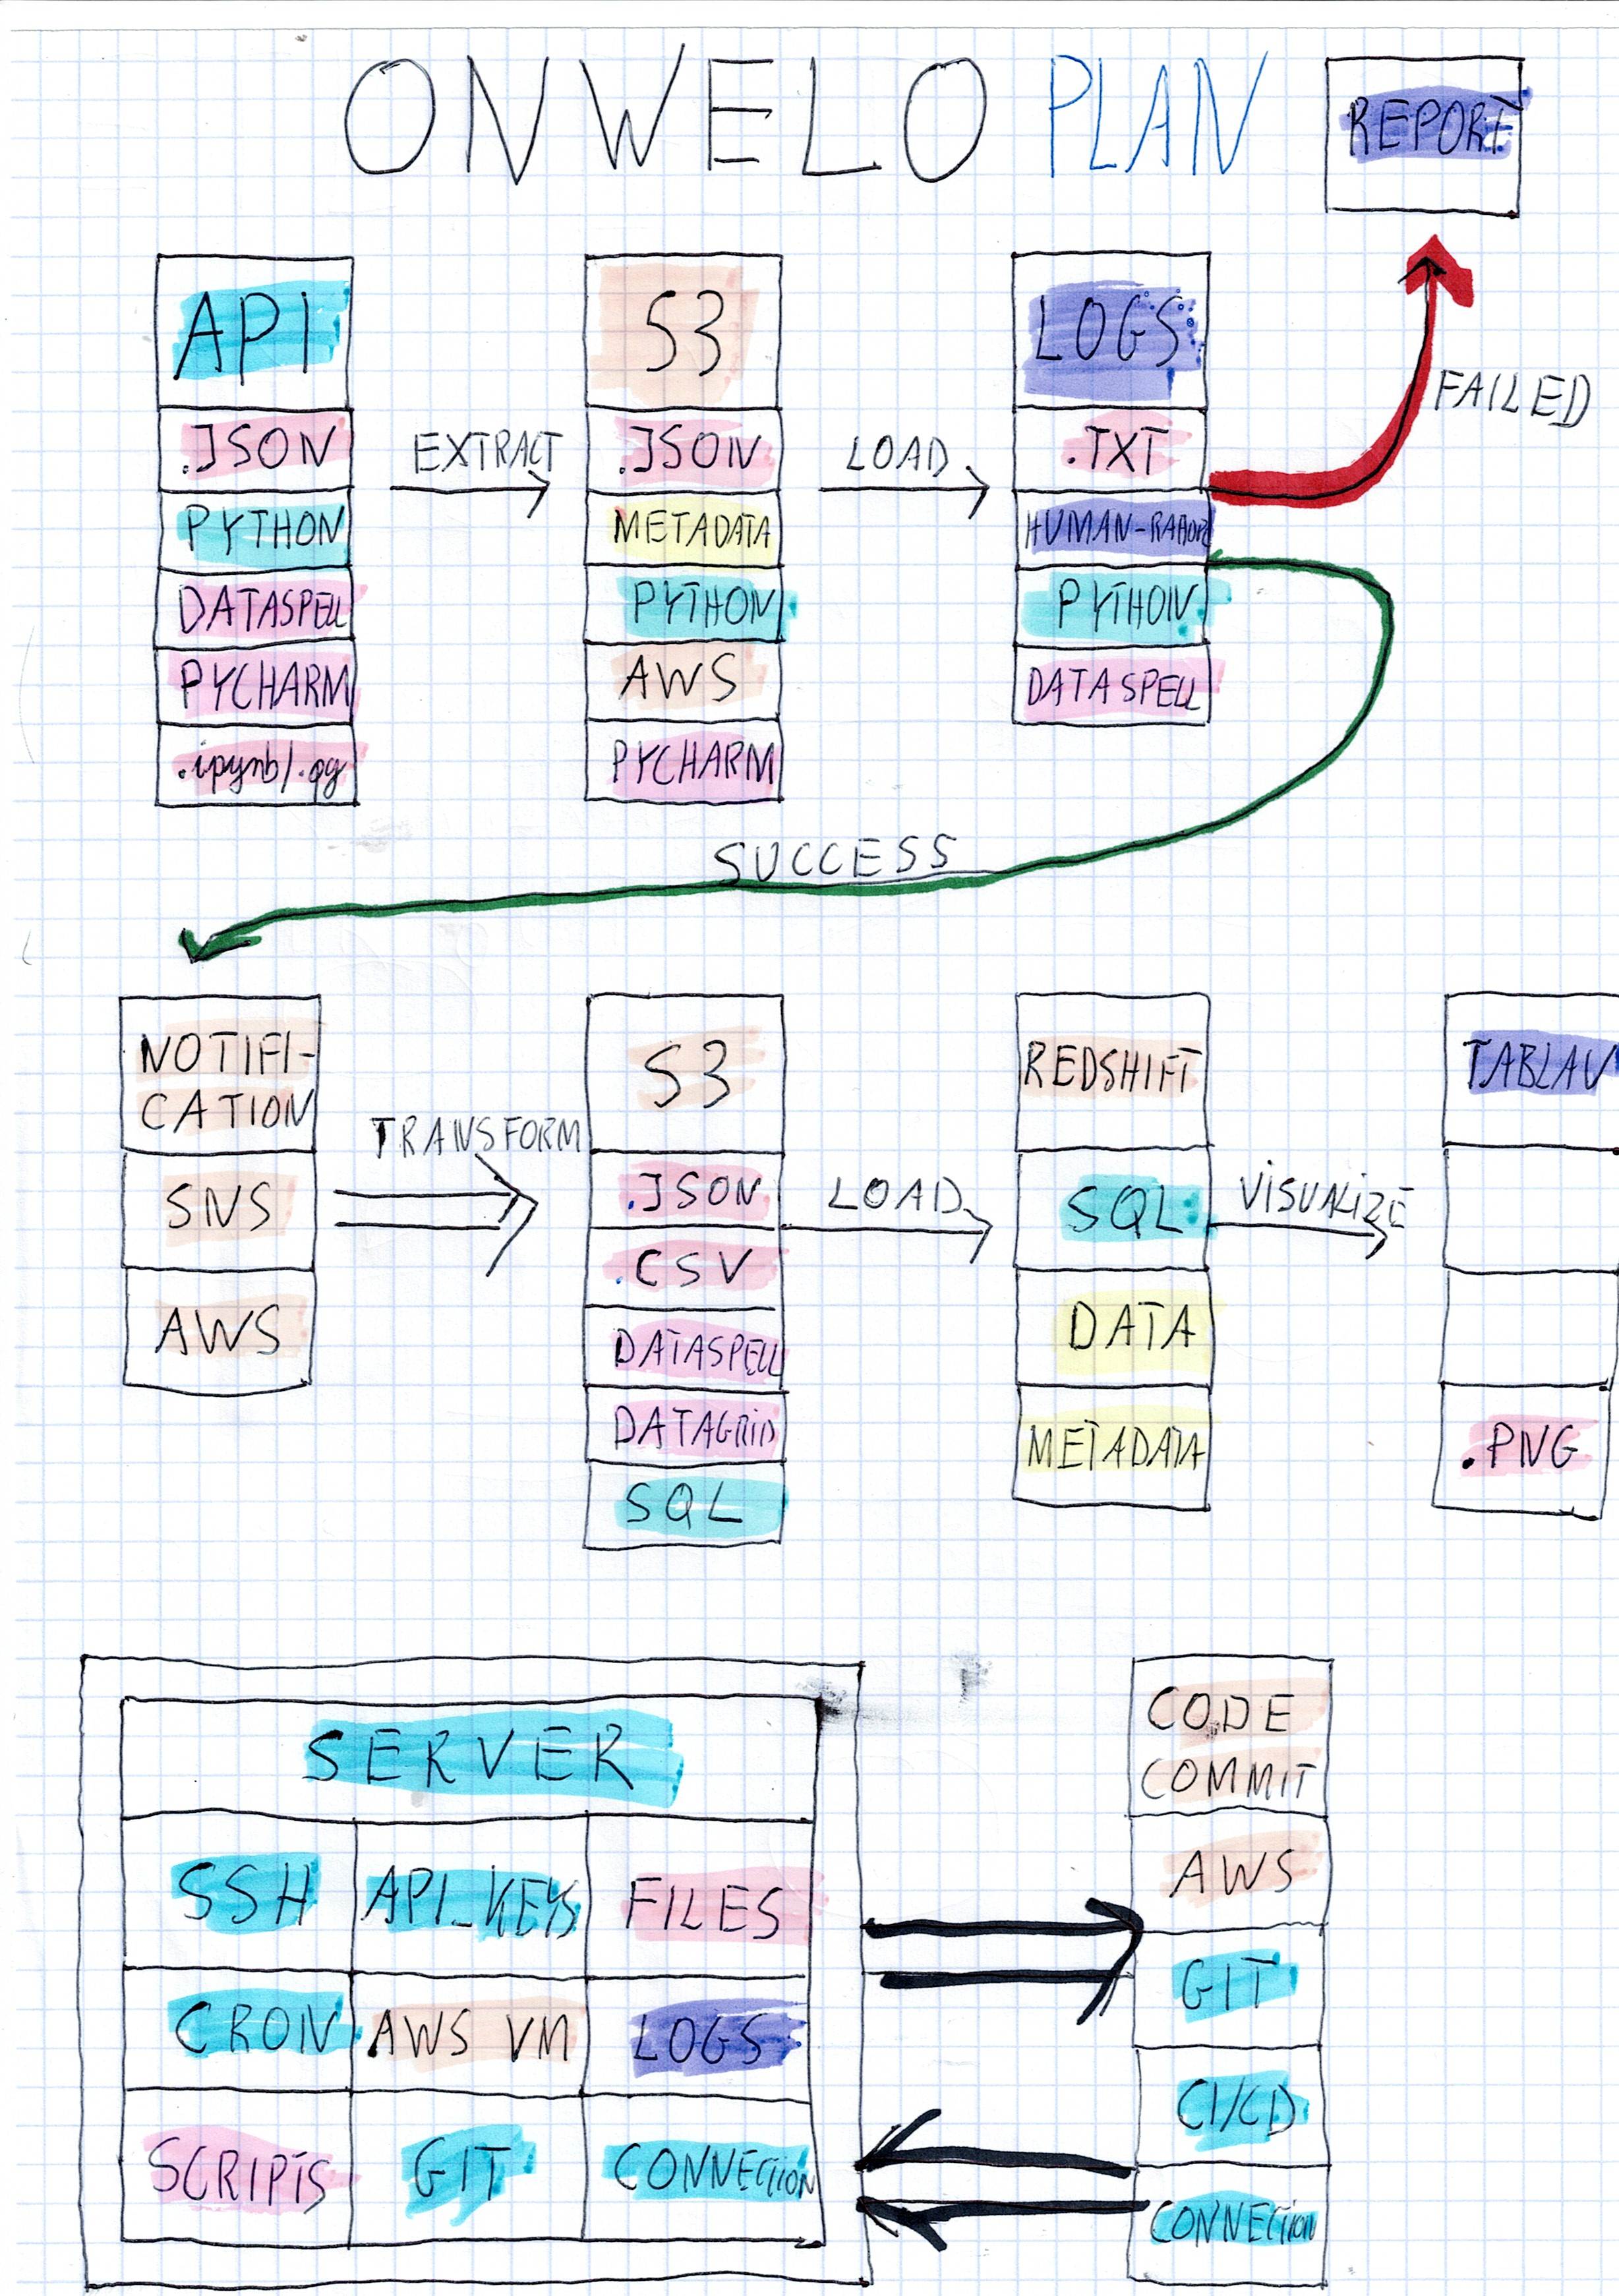 ONWELO PLAN
REPORT
API
.JSON
PYTHON
DATASPELL
PYCHARM
EXTRACT
S3
.JSON
METADATA
PYTHON
AWS
PYCHARM
LOAD
LOGS
.TXT
PYTHON
DATASPELL
FAILED
SUCCESS
NOTIFI-
CATION
SNS
AWS
TRANSFORM
S3
.JSON
.CSV
DATASPELL
DATAGRID
SQL
LOAD
REDSHIFT
SQL
DATA
METADATA
VISUALIZE
TABLAU
.PNG
SERVER
SSH API_KEYS FILES
CRON AWS VM LOGS
SCRIPTS GIT CONNECTION
CODE
COMMIT
AWS
GIT
CI/CD
CONNECTION